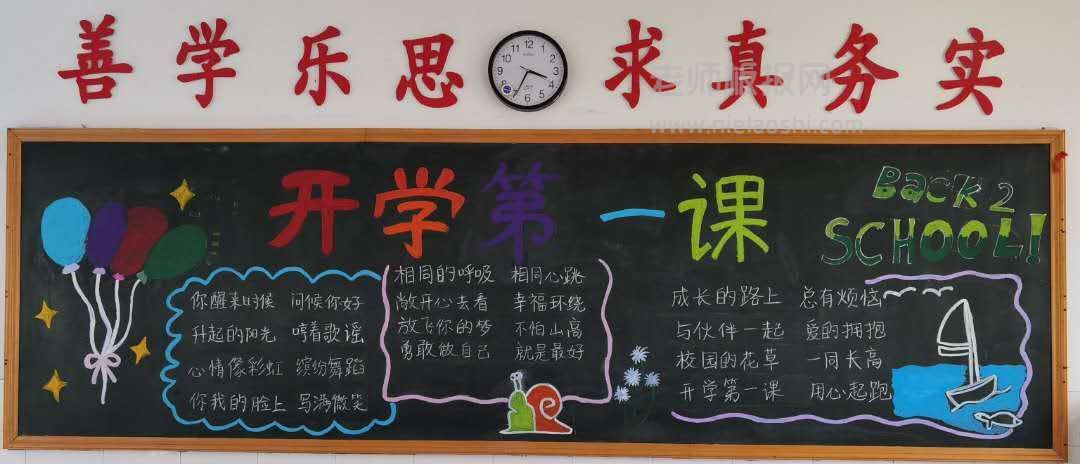 善学乐思 求真务实
老师板报网
www.nielaoshi.com
开学第一课
Back 2
SCHOOL!
你醒来时候 问候你好
升起的阳光 哼着歌谣
心情像彩虹 缤纷舞蹈
你我的脸上 写满微笑
相同的呼吸 相同心跳
敞开心去看 幸福环绕
放飞你的梦 不怕山高
勇敢做自己 就是最好
成长的路上 总有烦恼
与伙伴一起 爱的拥抱
校园的花草 一同长高
开学第一课 用心起跑